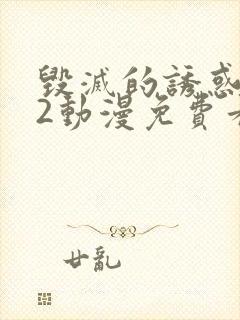 毀滅的誘惑
2動漫免費
廿亂